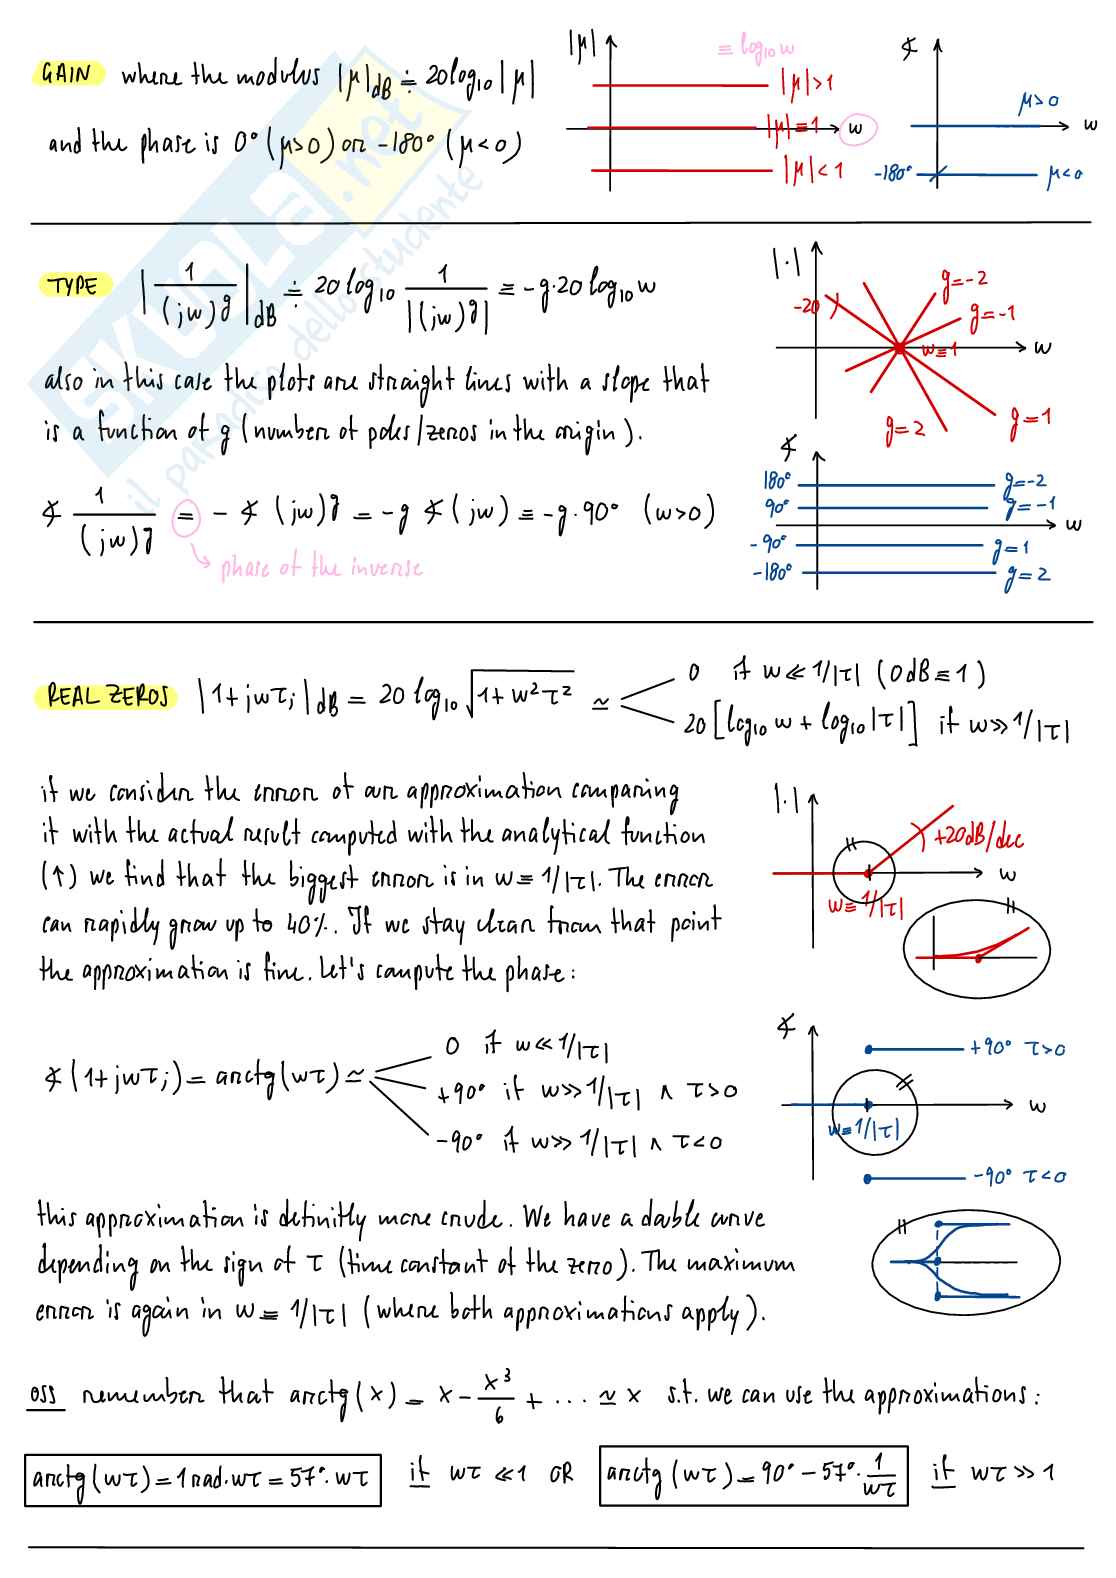 GAIN where the modulus |μ|dB ≐ 20log₁₀|μ|
and the phase is 0° (μ>0) or -180° (μ<0)
|μ|
≡ log₁₀w
|μ|>1
|μ|≡1
w
|μ|<1
∡
μ>0
w
-180°
μ<0
SKUOLA.net
il paradiso dello studente
TYPE |1/(jw)^g|dB ≐ 20 log₁₀ 1/|(jw)^g| ≡ -g·20 log₁₀w
also in this case the plots are straight lines with a slope that
is a function of g (number of poles/zeros in the origin).
∡ 1/(jw)^g = - ∡ (jw)^g = -g ∡(jw) ≡ -g·90° (w>0)
phase of the inverse
|·|
g=-2
-20
g=-1
w≡1
w
g=2
g=1
∡
180°
g=-2
90°
g=-1
w
-90°
g=1
-180°
g=2
REAL ZEROS |1+jwτᵢ|dB = 20 log₁₀ √(1+w²τ²) ≃
0 if w≪1/|τ| (0dB≡1)
20[log₁₀w + log₁₀|τ|] if w≫1/|τ|
if we consider the error of our approximation comparing
it with the actual result computed with the analytical function
(↑) we find that the biggest error is in w≡1/|τ|. The error
can rapidly grow up to 40%. If we stay clear from that point
the approximation is fine. Let's compute the phase:
|·|
+20dB/dec
w
w≡1/|τ|
∡(1+jwτᵢ) = arctg(wτ) ≃
0 if w≪1/|τ|
+90° if w≫1/|τ| ∧ τ>0
-90° if w≫1/|τ| ∧ τ<0
∡
+90° τ>0
w
w≡1/|τ|
-90° τ<0
this approximation is definitly more crude. We have a double curve
depending on the sign of τ (time constant of the zero). The maximum
error is again in w≡1/|τ| (where both approximations apply).
OSS remember that arctg(x) = x - x³/6 + ... ≃ x s.t. we can use the approximations:
arctg(wτ) = 1 rad·wτ = 57°·wτ if wτ ≪ 1 OR arctg(wτ) = 90° - 57°·1/wτ if wτ ≫ 1